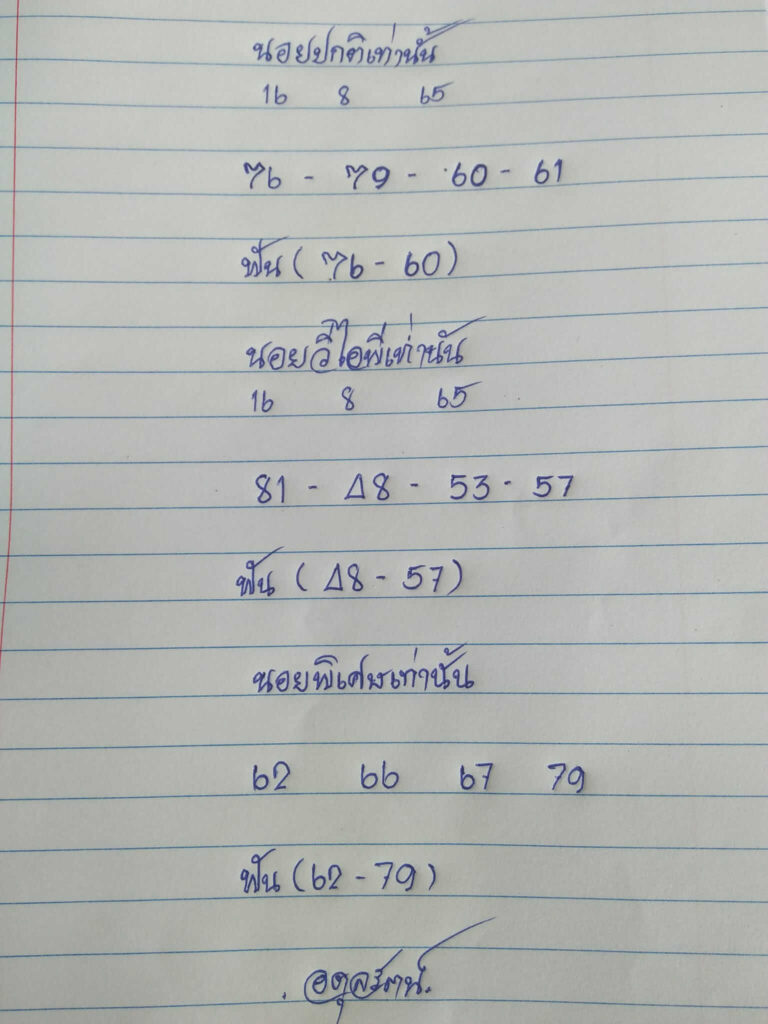 นอยปกติเท่านั้น
16 8 65
76 - 79 - 60 - 61
ฟัน ( 76 - 60 )
นอยวีไอพีเท่านั้น
16 8 65
81 - 48 - 53 - 57
ฟัน ( 48 - 57 )
นอยพิเศษเท่านั้น
62 66 67 79
ฟัน ( 62 - 79 )